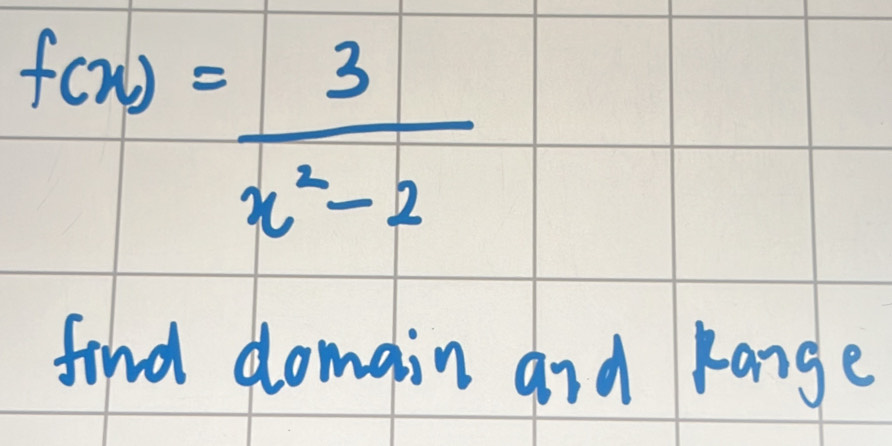 f(x) = 3 / (x² - 2)
find domain and Range